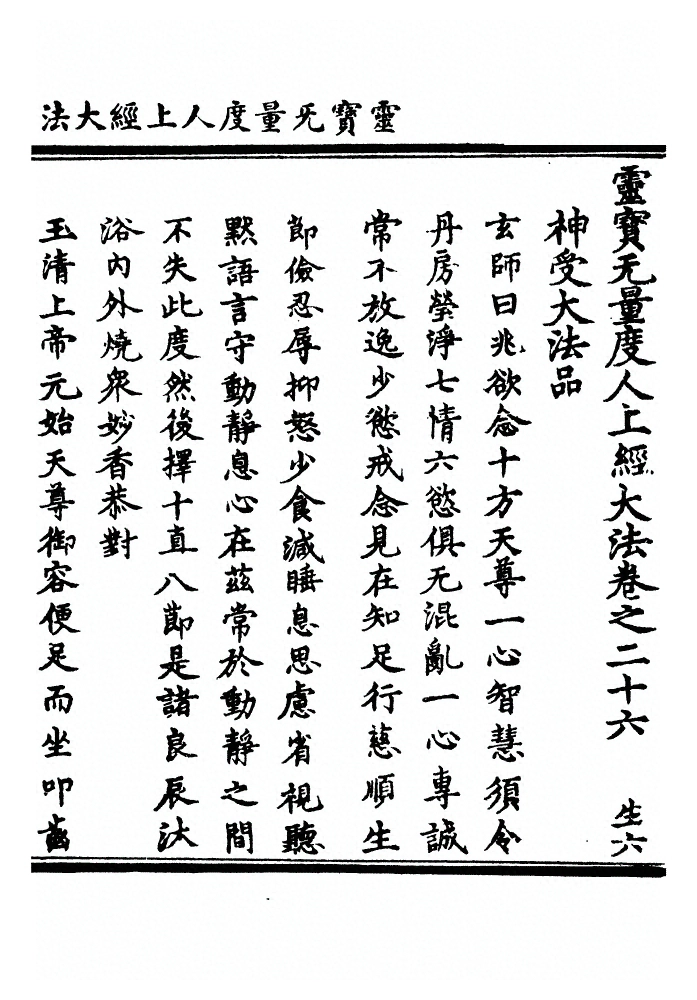 靈寶无量度人上經大法
靈寶无量度人上經大法卷之二十六 生六
神受大法品
玄師曰兆欲念十方天尊一心智慧須令
丹房瑩淨七情六慾俱无混亂一心專誠
常不放逸少慾戒念見在知足行慈順生
節儉忍辱抑怒少食減睡息思慮省視聽
默語言守動靜息心在茲常於動靜之間
不失此度然後擇十直八節是諸良辰汰
浴內外燒衆妙香恭對
玉清上帝元始天尊御容便足而坐叩齒